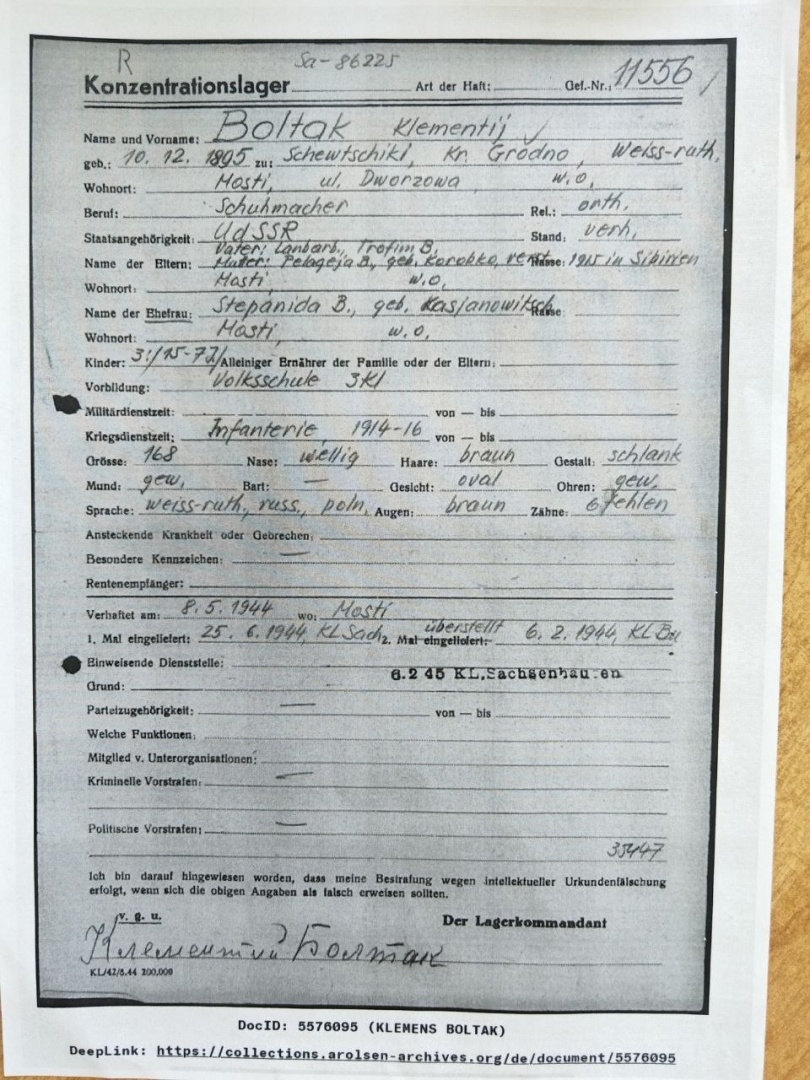 R Sa-86225
Konzentrationslager Art der Haft: Gef.-Nr.: 11556
Name und Vorname: Boltak Klementij
geb.: 10. 12. 1895 zu: Schewtschiki, Kr. Grodno, Weiss-ruth.
Wohnort: Mosti, ul. Dworzowa w.o.
Beruf: Schuhmacher Rel.: orth.
Staatsangehörigkeit: UdSSR Stand: verh.
Vater: Landarb., Trofim B.
Name der Eltern: Mutter: Pelageja B., geb. Korobko, verst. Rasse: 1915 in Sibirien
Wohnort: Mosti w.o.
Name der Ehefrau: Stepanida B., geb. Kasjanowitsch Rasse:
Wohnort: Mosti, w.o.
Kinder: 3:/15-7J/ Alleiniger Ernährer der Familie oder der Eltern:
Vorbildung: Volksschule 3Kl
Militärdienstzeit: von — bis
Kriegsdienstzeit: Infanterie, 1914-16 von — bis
Grösse: 168 Nase: wellig Haare: braun Gestalt: schlank
Mund: gew. Bart: — Gesicht: oval Ohren: gew.
Sprache: weiss-ruth., russ., poln. Augen: braun Zähne: 6 fehlen
Ansteckende Krankheit oder Gebrechen:
Besondere Kennzeichen: —
Rentenempfänger:
Verhaftet am: 8. 5. 1944 wo: Mosti
1. Mal eingeliefert: 25. 6. 1944, KL Sach 2. Mal eingeliefert: überstellt 6. 2. 1944, KL Bu
Einweisende Dienststelle:
6.2 45 KL.Sachsenhau.en
Grund:
Parteizugehörigkeit: — von — bis
Welche Funktionen:
Mitglied v. Unterorganisationen:
Kriminelle Vorstrafen: —
Politische Vorstrafen: —
35447
Ich bin darauf hingewiesen worden, dass meine Bestrafung wegen intellektueller Urkundenfälschung
erfolgt, wenn sich die obigen Angaben als falsch erweisen sollten.
v. g. u. Der Lagerkommandant
Клементий Болтак
KL/42/5.44 200.000
DocID: 5576095 (KLEMENS BOLTAK)
DeepLink: https://collections.arolsen-archives.org/de/document/5576095